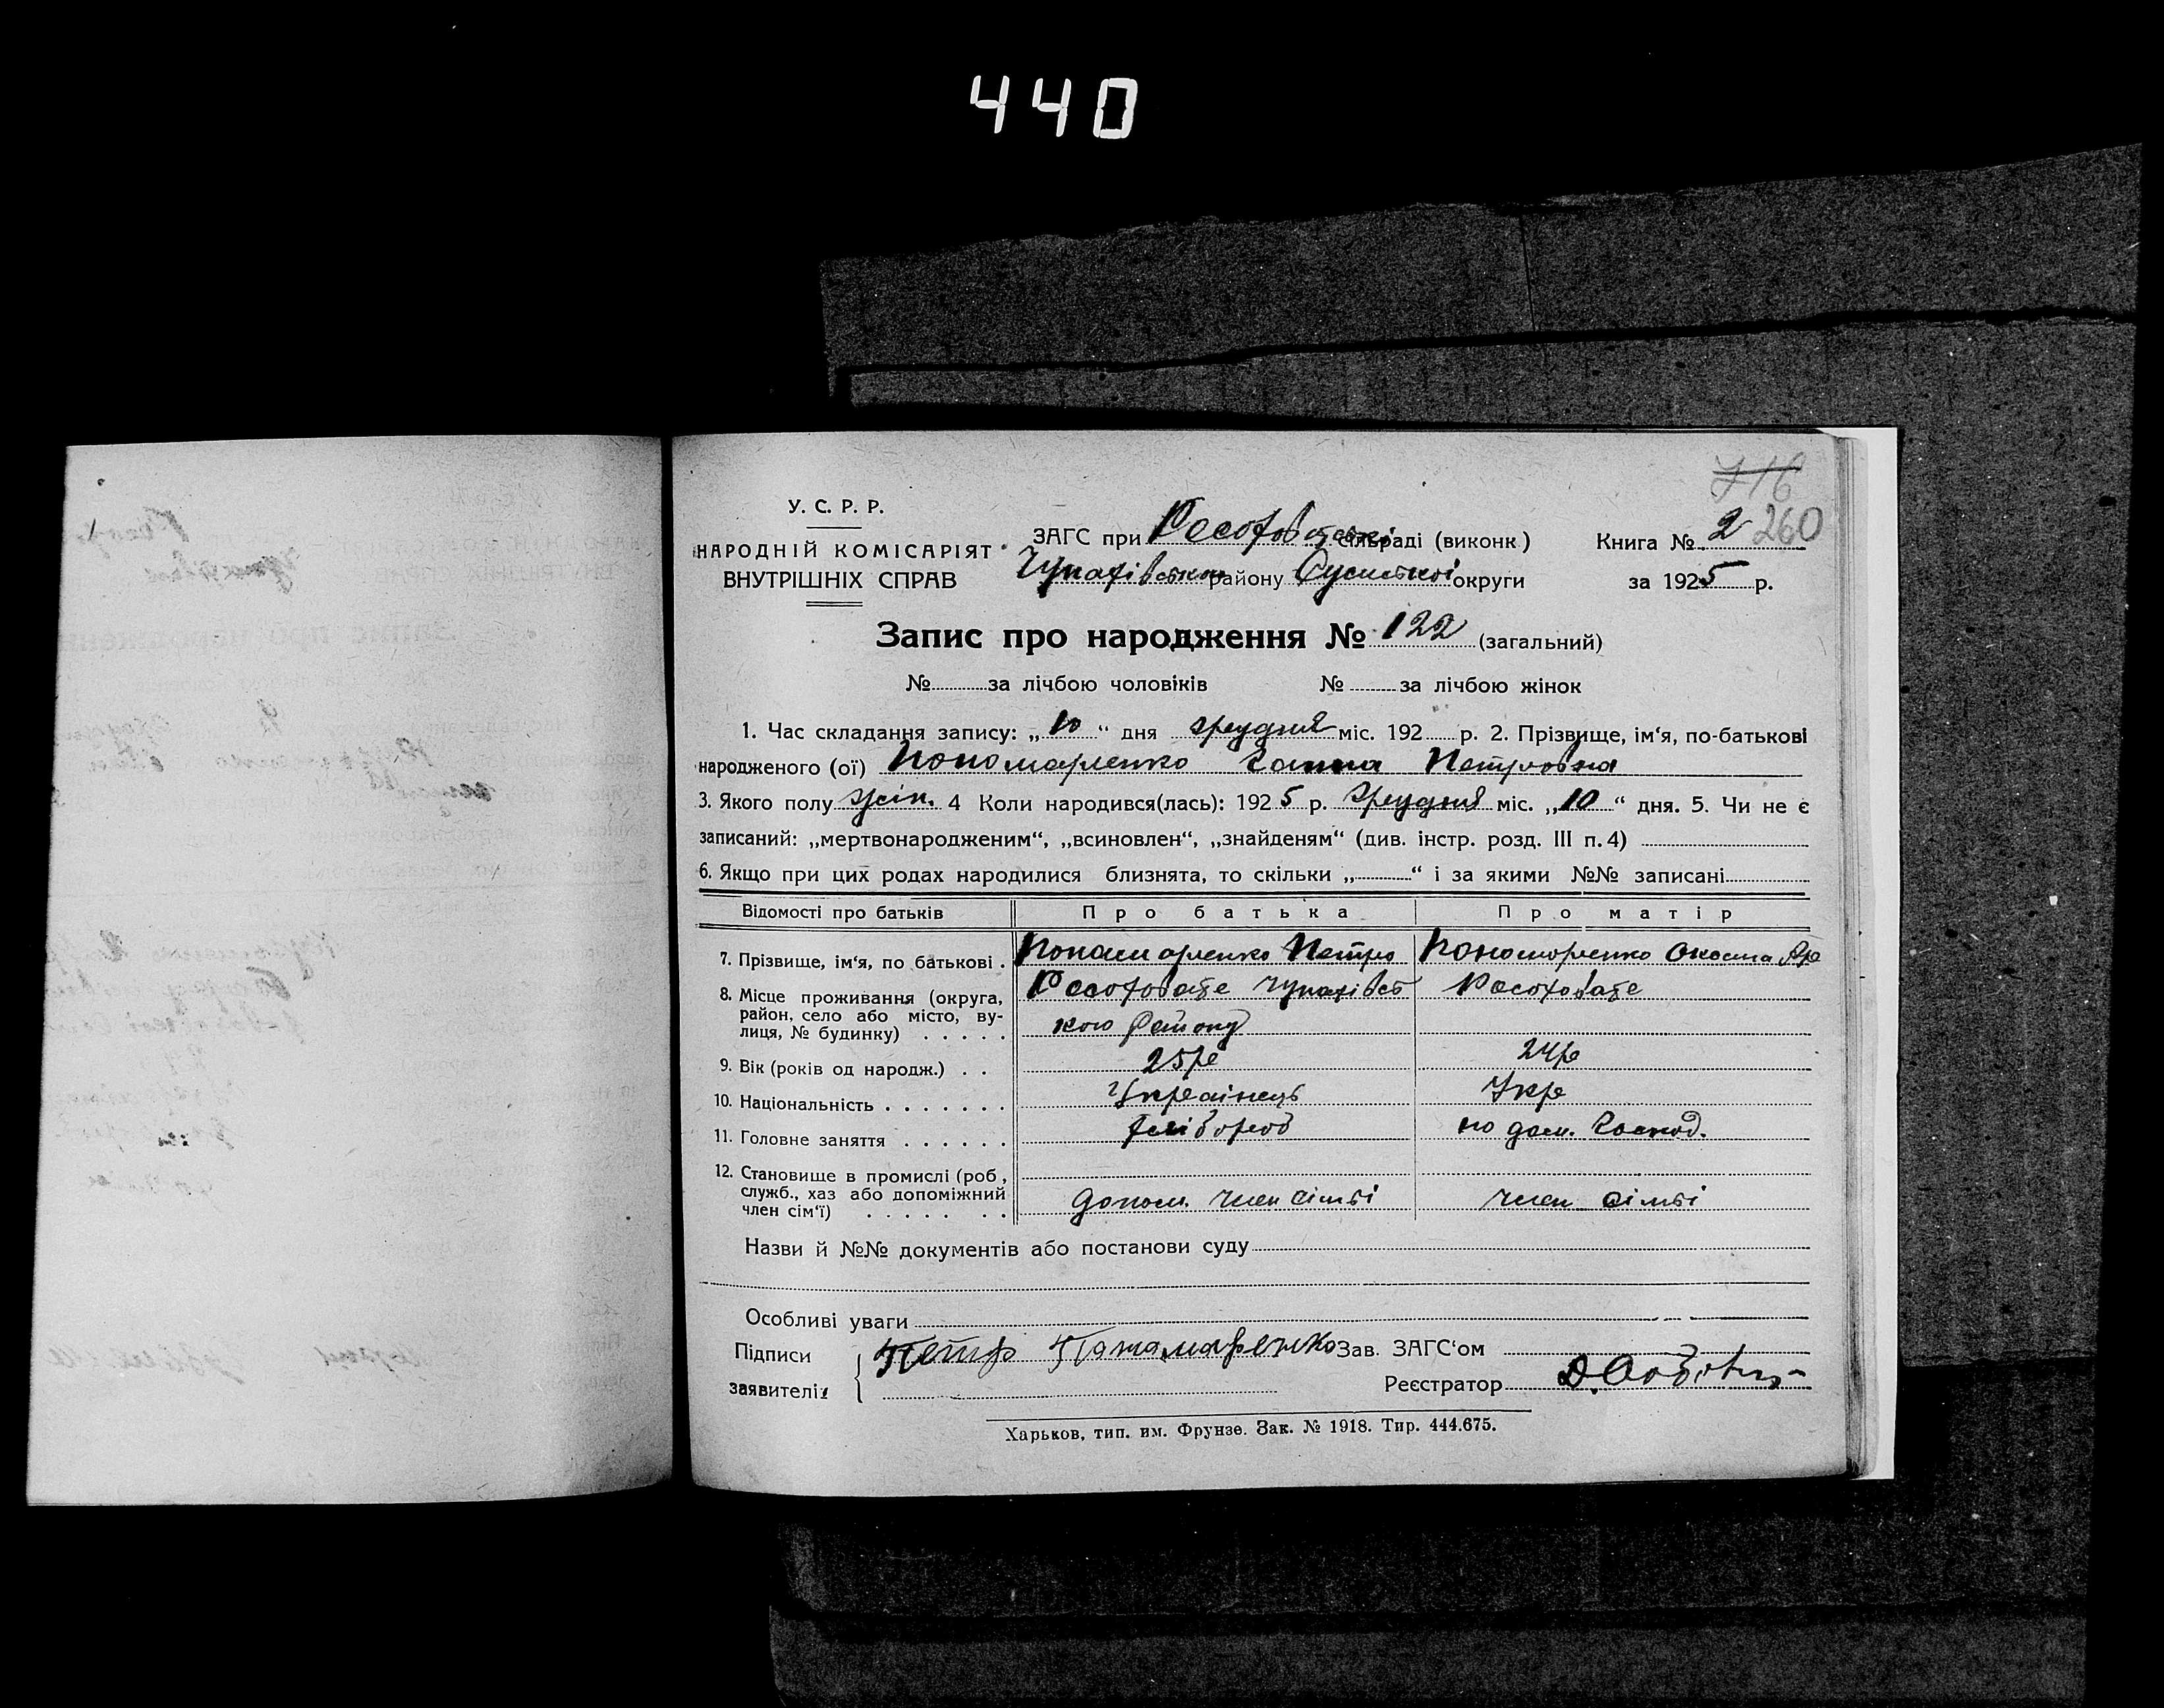 440
716
260
У. С. Р. Р.
НАРОДНІЙ КОМІСАРІЯТ
ВНУТРІШНІХ СПРАВ
ЗАГС при Росоховатській сільраді (виконк)
району Сумської округи
Книга № 2
за 1925 р.
Запис про народження № 122 (загальний)
№ за лічбою чоловіків № за лічбою жінок
1. Час складання запису: „10“ дня грудня міс. 192 р. 2. Прізвище, ім‘я, по-батькові
народженого (ої) Пономаренко Ганна Петровна
3. Якого полу жін. 4 Коли народився(лась): 1925 р. Грудня міс. „10“ дня. 5. Чи не є
записаний: „мертвонародженим“, „всиновлен“, „знайденям“ (див. інстр. розд. III п. 4)
6. Якщо при цих родах народилися близнята, то скільки „ “ і за якими №№ записані
Відомості про батьків Про батька Про матір
7. Прізвище, ім‘я, по батькові . Пономаренко Петро Пономоренко Оксана
8. Місце проживання (округа, район, село або місто, вулиця, № будинку) . . . . . Росоховате Росоховате
кого Району
9. Вік (років од народж.) . . 25р 24р
10. Національність . . . . . . . Українець Укр
11. Головне заняття . . . . . . хлібороб по дом. Господ.
12. Становище в промислі (роб, служб., хаз або допоміжний член сім‘ї) . . . . . . . допом. член сімьі член сімьі
Назви й №№ документів або постанови суду
Особливі уваги
Підписи Петр Панамаренко Зав. ЗАГС‘ом
заявителів Реєстратор
Харьков, тип. им. Фрунзе. Зак. № 1918. Тир. 444.675.